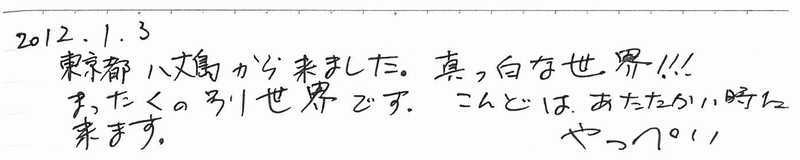 2012.1.3
東京都 八丈島から来ました。真っ白な世界!!!
まったくの別世界です. こんどは、あたたかい時に
来ます。 やっぺい